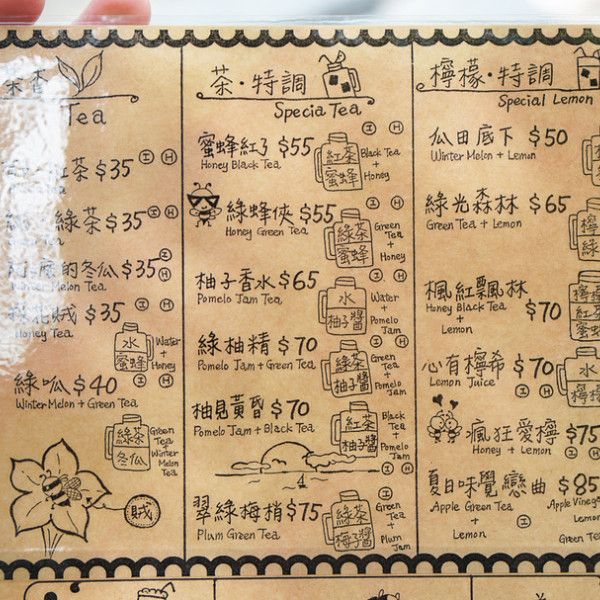 Tea
紅茶 $35 I H
綠茶 $35 I H
的冬瓜 $35 I H
Winter Melon Tea
$35 I
Honey Tea
水
蜜蜂
Water
+
Honey
綠呱 $40 I H
Winter Melon + Green Tea
綠茶
冬瓜
Green
Tea
+
Winter
Melon
Tea
賊
茶·特調
Specia Tea
蜜蜂紅了 $55 I H
Honey Black Tea
紅茶
蜜蜂
Black Tea
+
Honey
綠蜂俠 $55 I H
Honey Green Tea
綠茶
蜜蜂
Green
Tea
+
Honey
柚子香水 $65 I H
Pomelo Jam Tea
水
柚子醬
Water
+
Pomelo
Jam
綠柚精 $70 I H
Pomelo Jam + Green Tea
綠茶
柚子醬
Green
Tea
+
Pomelo
Jam
柚見黃昏 $70
Pomelo Jam + Black Tea
紅茶
柚子醬
Black
Tea
+
Pomelo
Jam
翠綠梅梢 $75 I H
Plum Green Tea
綠茶
梅子醬
Green
Tea
+
Plum
Jam
檸檬·特調
Special Lemon
瓜田底下 $50
Winter Melon + Lemon
綠光森林 $65
Green Tea + Lemon
檸
綠
楓紅飄林 $70
Honey Black Tea
+
Lemon
檸檬
紅茶
蜜
心有檸希 $70 I H
Lemon Juice
水
檸檬
瘋狂愛檸 $75
Honey + Lemon I H
夏日味覺戀曲 $85
Apple Green Tea
+
Lemon
I
Apple Vinegar
Lemon
Green Tea